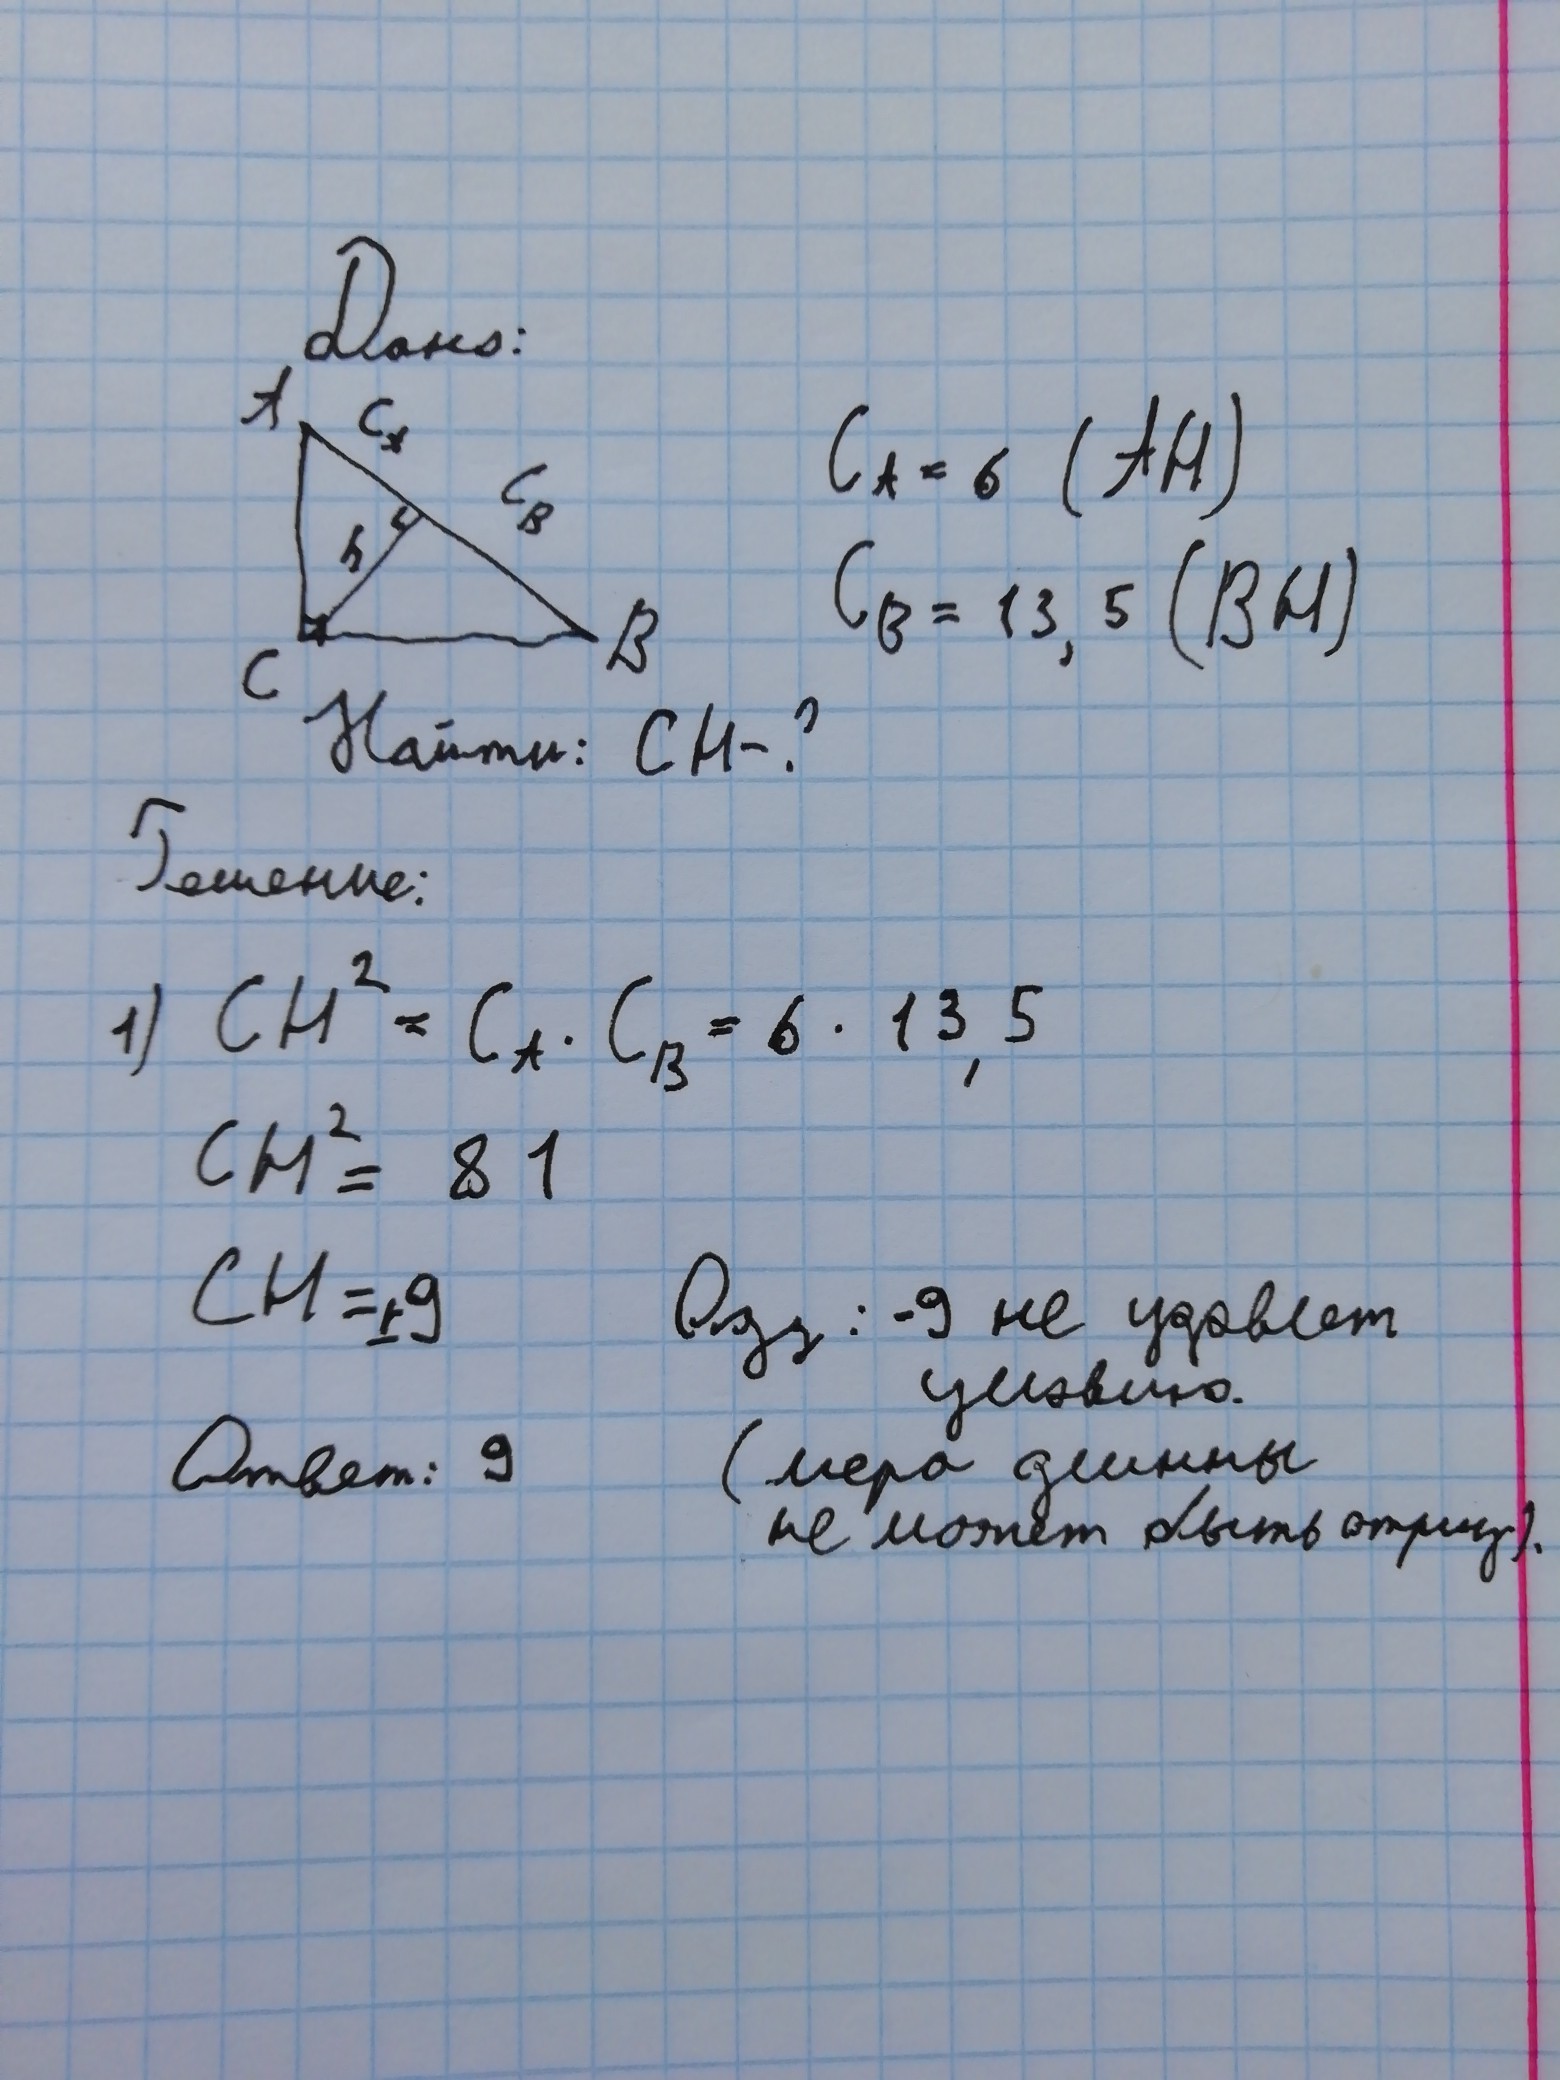 Дано:
A
C_A
C_B
h
C
B
C_A = 6 (AH)
C_B = 13,5 (BH)
Найти: CH-?
Решение:
1) CH² = C_A · C_B = 6 · 13,5
CH² = 81
CH = ±9
Одз: -9 не удовлет
условию.
(мера длинны
не может быть отриц).
Ответ: 9